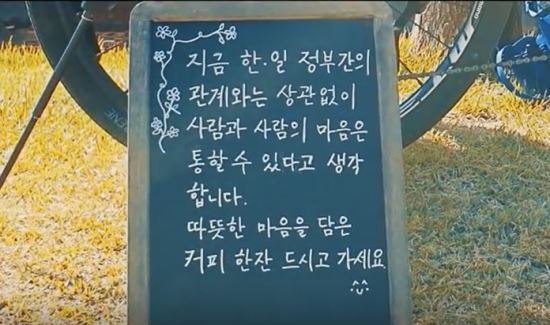 지금 한·일 정부간의
관계와는 상관없이
사람과 사람의 마음은
통할 수 있다고 생각
합니다.
따뜻한 마음을 담은
커피 한잔 드시고 가세요.